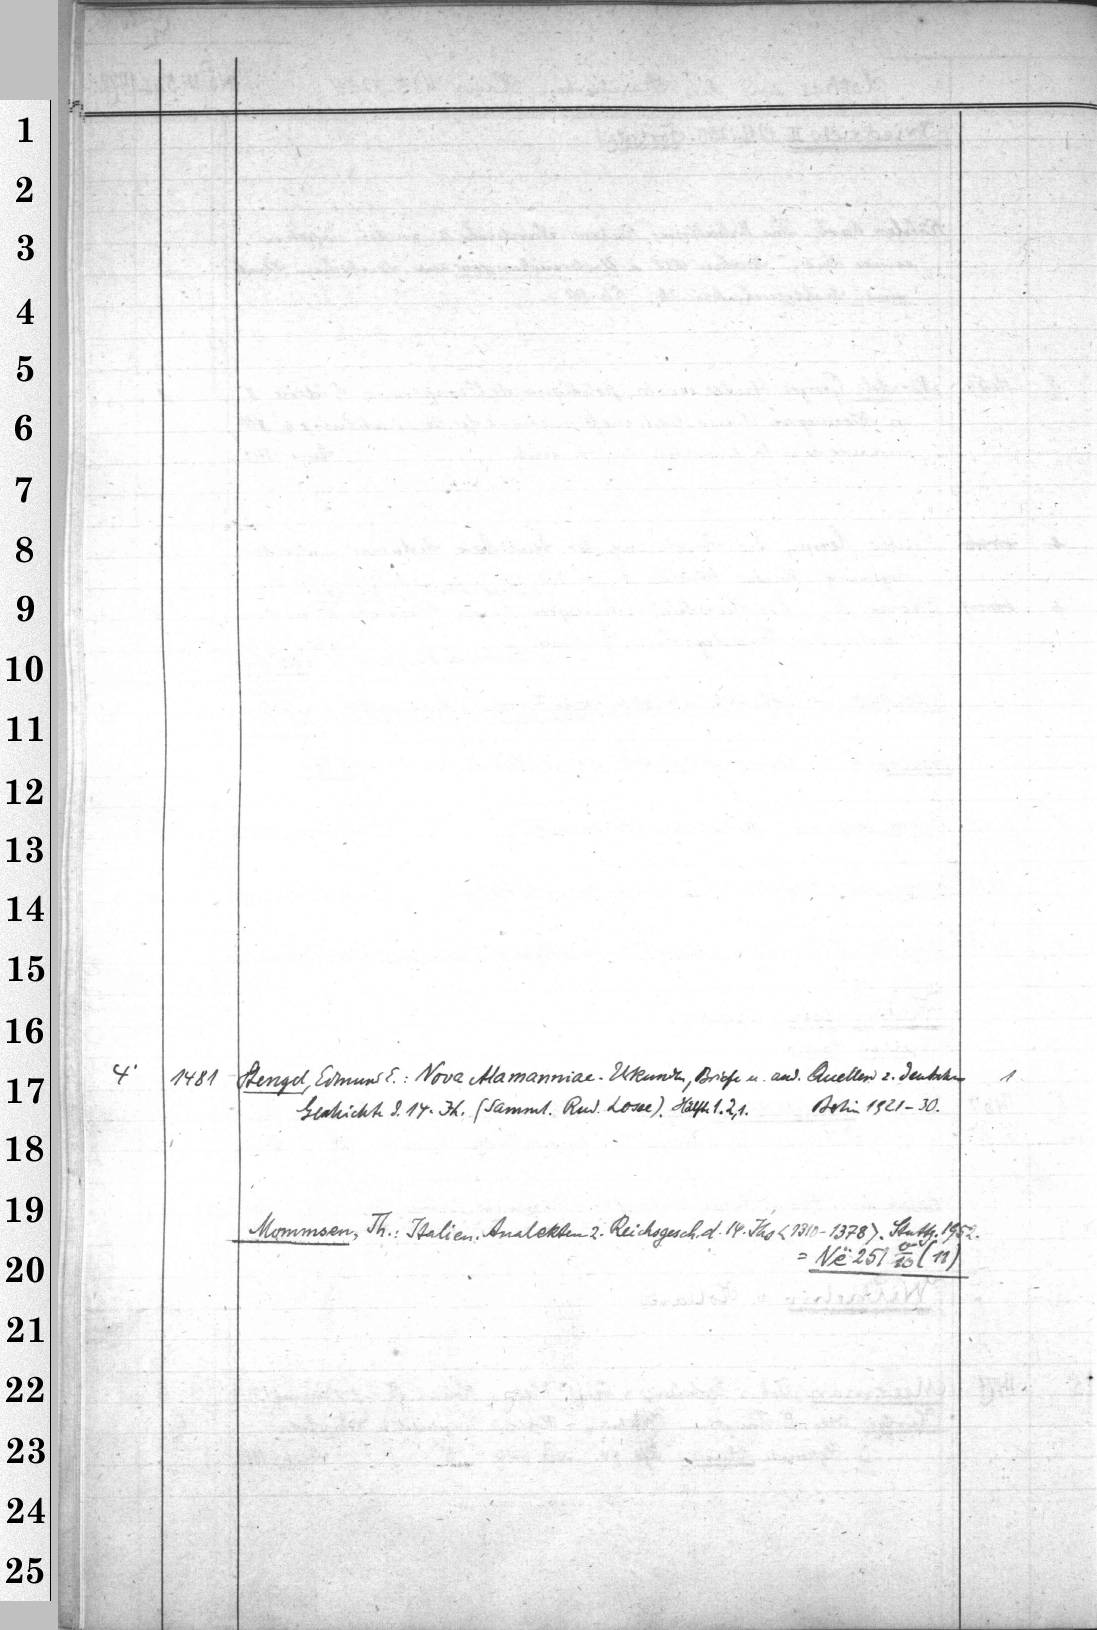 1
2
3
4
5
6
7
8
9
10
11
12
13
14
15
16
17
18
19
20
21
22
23
24
25
4° 1481 Stengel, Edmund E.: Nova Alamanniae. Urkunden, Briefe u. and. Quellen z. deutschen 1
Geschichte d. 14. Jh. (Samml. Rud. Losse). Hälfte 1. 2,1. Berlin 1921-30.
Mommsen, Th.: Italien. Analekten z. Reichsgesch. d. 14. Jhs <1310-1378>. Stuttg. 1952.
= Në 251 (11)